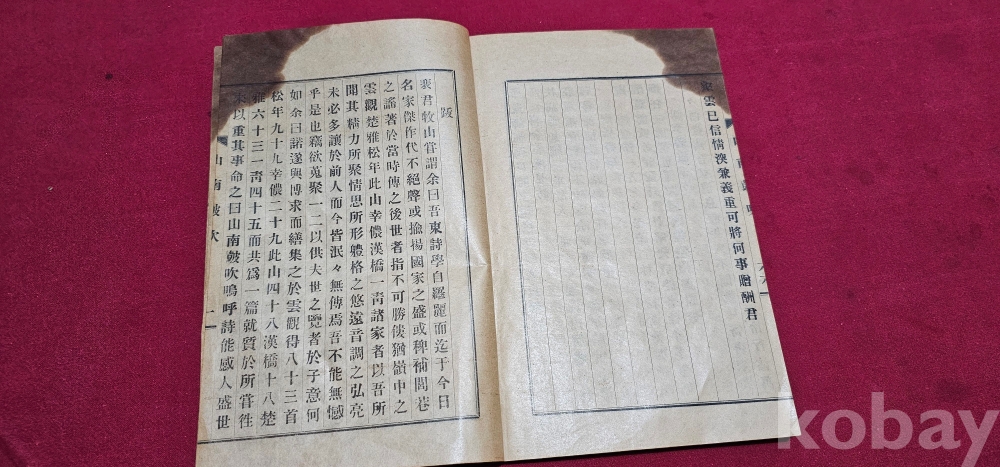 雲已信情澳兼義重可將何事贈酬君
六六
跋
裵君牧山嘗謂余曰吾東詩學自羅麗而迄于今日
名家傑作代不絕聲或揄揚國家之盛或稗補閭巷
之謠著於當時傳之後世者指不可勝僂猶嶺中之
雲觀楚雅松年此山幸儂漢橋一靑諸家者以吾所
聞其精力所聚情思所形軆格之悠遠音調之弘亮
未必多讓於前人而今皆泯々無傳焉吾不能無憾
乎是也竊欲蒐聚一二以供夫世之覽者於子意何
如余曰諾遂與博求而繕集之於雲觀得八十三首
松年九十九幸儂二十九此山四十八漢橋十八楚
雅六十三一靑四十五而共爲一篇就質於所嘗徃
以重其事命之曰山南皷吹嗚呼詩能感人盛世
山南皷吹
一
kobay